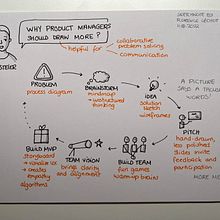 WHY PRODUCT MANAGERS
SHOULD DRAW MORE?
helpful for
collaborative
problem solving
communication
SKETCHNOTE BY
PROBLEM
process diagram
BRAINSTORM
mindmap
unstructured
thinking
IDEA
solution
sketch
wireframes
A PICTURE
SAID A THOUSAND
WORDS?
PITCH
hand-drawn
less polished
slides invite
feedback and
participation
BUILD TEAM
fun games
warm-up brain
TEAM VISION
brings clarity
and alignment
BUILD MVP
storyboard
visualise
creates
empathy
algorithms
MORE